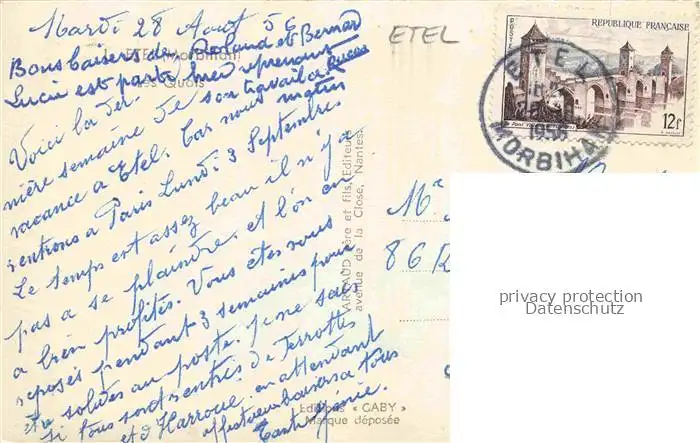 Mardi 28 Août 56
Bons baisers de Roland et Bernard
Lucie est partie hier reprenant
son travail a
Voici la der-
nière semaine de
vacance a Etel. Car nous
rentrons a Paris Lundi 3 Septembre
Le temps est assez beau il n'y a
pas a se plaindre, et l'on en
a bien profités. Vous êtes vous
reposés pendant 3 semaines pour
être solides au poste. je ne sais
si tous sont rentrés de
et d'Haroué. en attendant
affectueux baisers a tous
Tante
ETEL (Morbihan)
Les Quais
ARNAUD Père et fils, Editeurs
avenue de la Close, Nantes
Editions « GABY »
Marque déposée
ETEL
POSTES
REPUBLIQUE FRANÇAISE
12f
ETEL
1956
MORBIHAN
Mr
86
privacy protection
Datenschutz